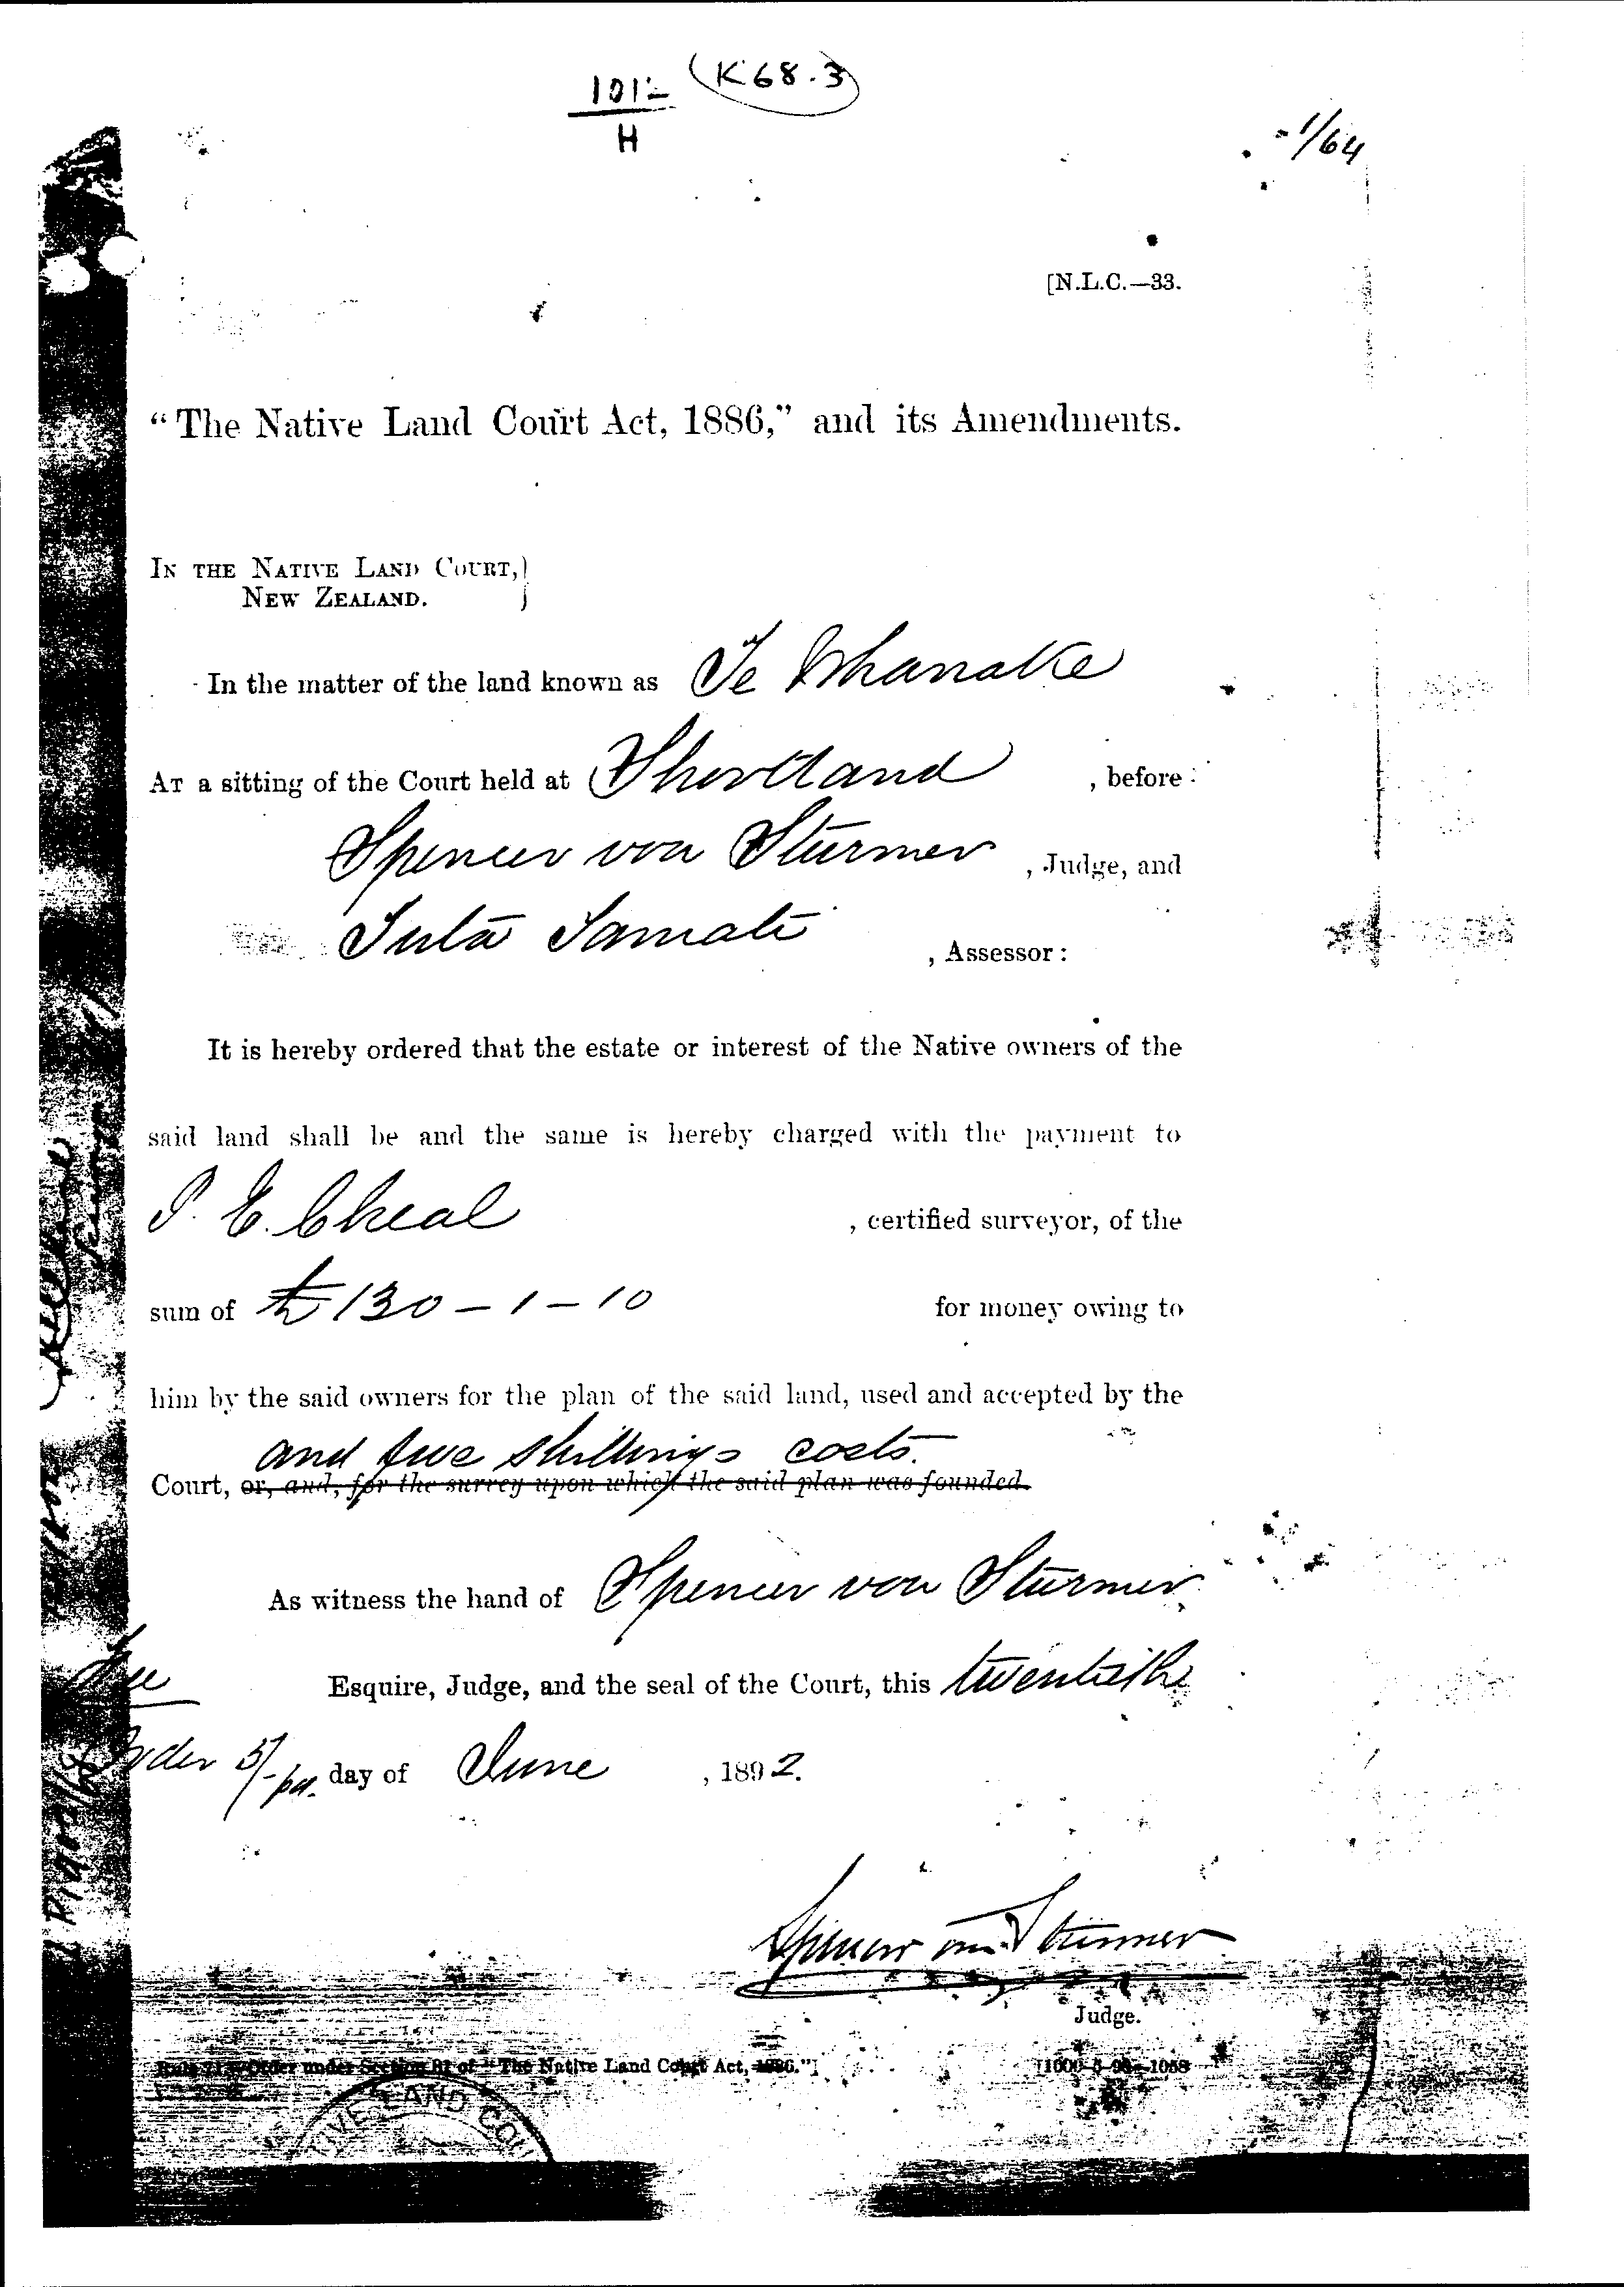 101-
H
K68.3
1/64
[N.L.C.—33.
"The Native Land Court Act, 1886," and its Amendments.
IN THE NATIVE LAND COURT,
NEW ZEALAND.
In the matter of the land known as Te Whanake
AT a sitting of the Court held at Shortland , before
Spencer von Stürmer , Judge, and
Tuta Tamati , Assessor:
It is hereby ordered that the estate or interest of the Native owners of the
said land shall be and the same is hereby charged with the payment to
P. E. Cheal , certified surveyor, of the
sum of £130-1-10 for money owing to
him by the said owners for the plan of the said land, used and accepted by the
and five shillings costs.
Court, or, and, for the survey upon which the said plan was founded.
As witness the hand of Spencer von Stürmer
Esquire, Judge, and the seal of the Court, this twentieth
Order 5/- pd. day of June , 1892.
Spencer von Stürmer
Judge.
Order under Section 81 of "The Native Land Court Act, 1886."]
TIVE LAND COU